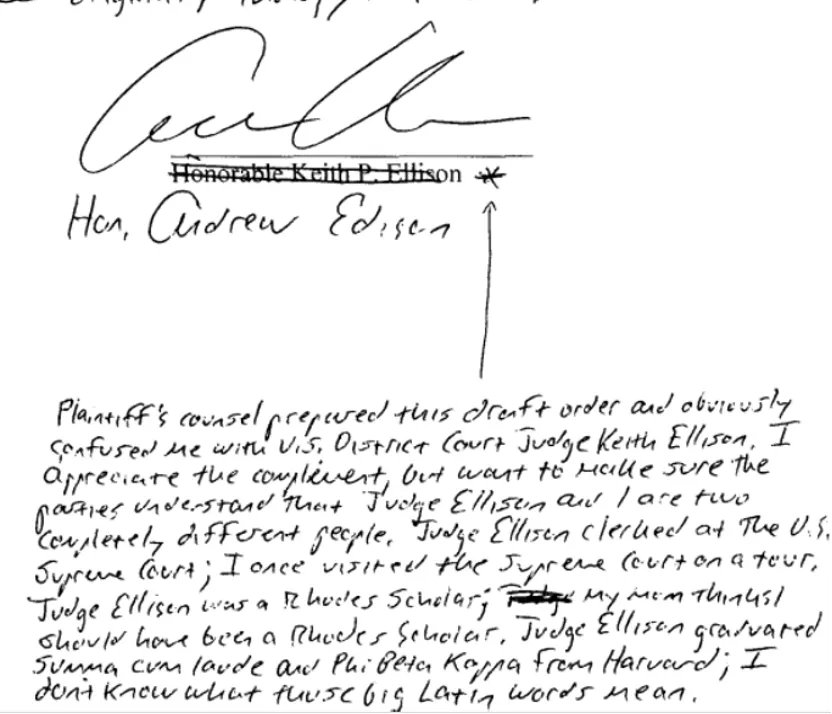 Honorable Keith P. Ellison *
Hon. Andrew Edison
Plaintiff's counsel prepared this draft order and obviously
confused me with U.S. District Court Judge Keith Ellison. I
appreciate the complement, but want to make sure the
parties understand that Judge Ellison and I are two
completely different people. Judge Ellison clerked at the U.S.
Supreme Court; I once visited the Supreme Court on a tour.
Judge Ellison was a Rhodes Scholar; my mom thinks I
should have been a Rhodes Scholar. Judge Ellison graduated
summa cum laude and Phi Beta Kappa from Harvard; I
don't know what those big Latin words mean.